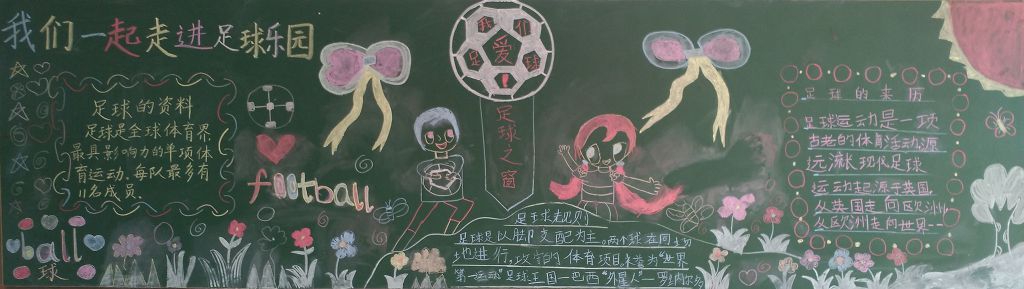 我们一起走进足球乐园
足球的资料
足球是全球体育界
最具影响力的单项体
育运动，每队最多有
11名成员。
ball
球
football
我们
爱
足球
足球之窗
足球规则
足球是以脚支配为主。两个球在同
地进行，攻守的体育项目。未誉为"世界
第一运动"足球王国—巴西"外星人"—罗纳尔多
足球的来历
足球运动是一项
古老的体育活动，源
远流长现代足球
运动起源于英国
从英国走向欧洲
从欧洲走向世界